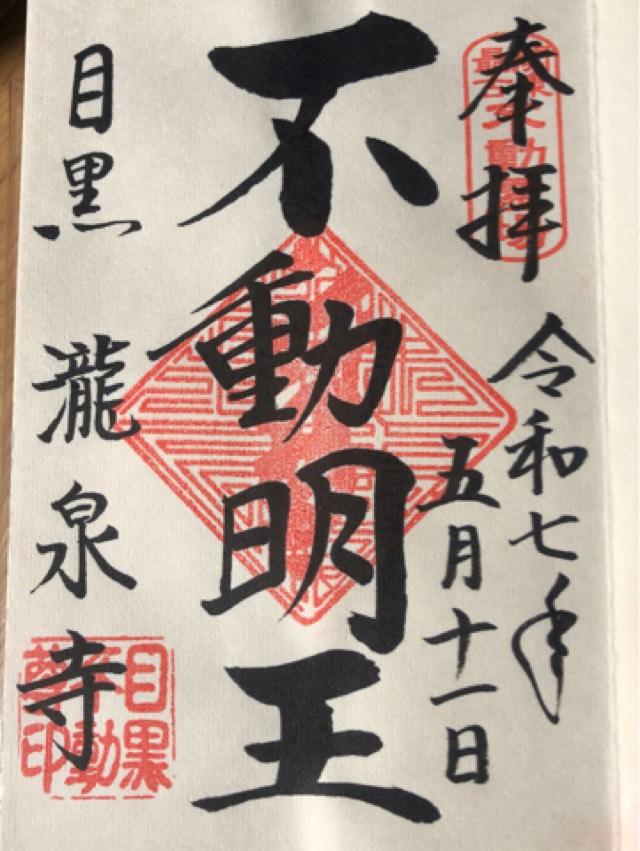 奉拝
令和七年
五月十一日
不動明王
目黒
瀧泉寺
目黒
不動
尊印